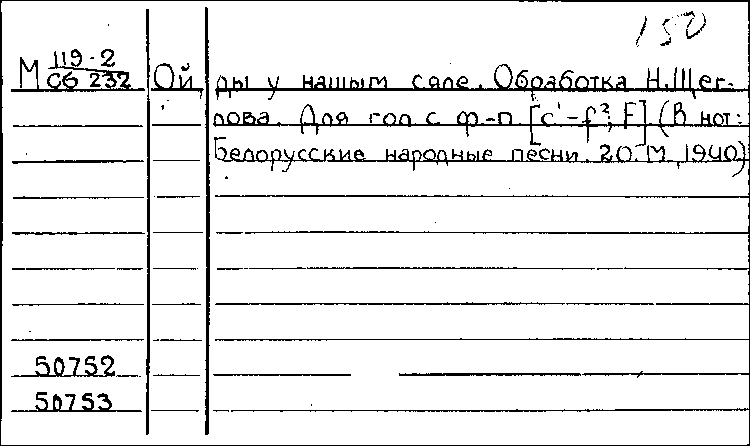 150
М 119-2 / Сб 232 Ой, ды у нашым сяле. Обработка Н.Щег-
лова. Для гол с ф-п. [c¹-f²; F] (В нот:
Белорусские народные песни. 20. М., 1940)
50752
50753